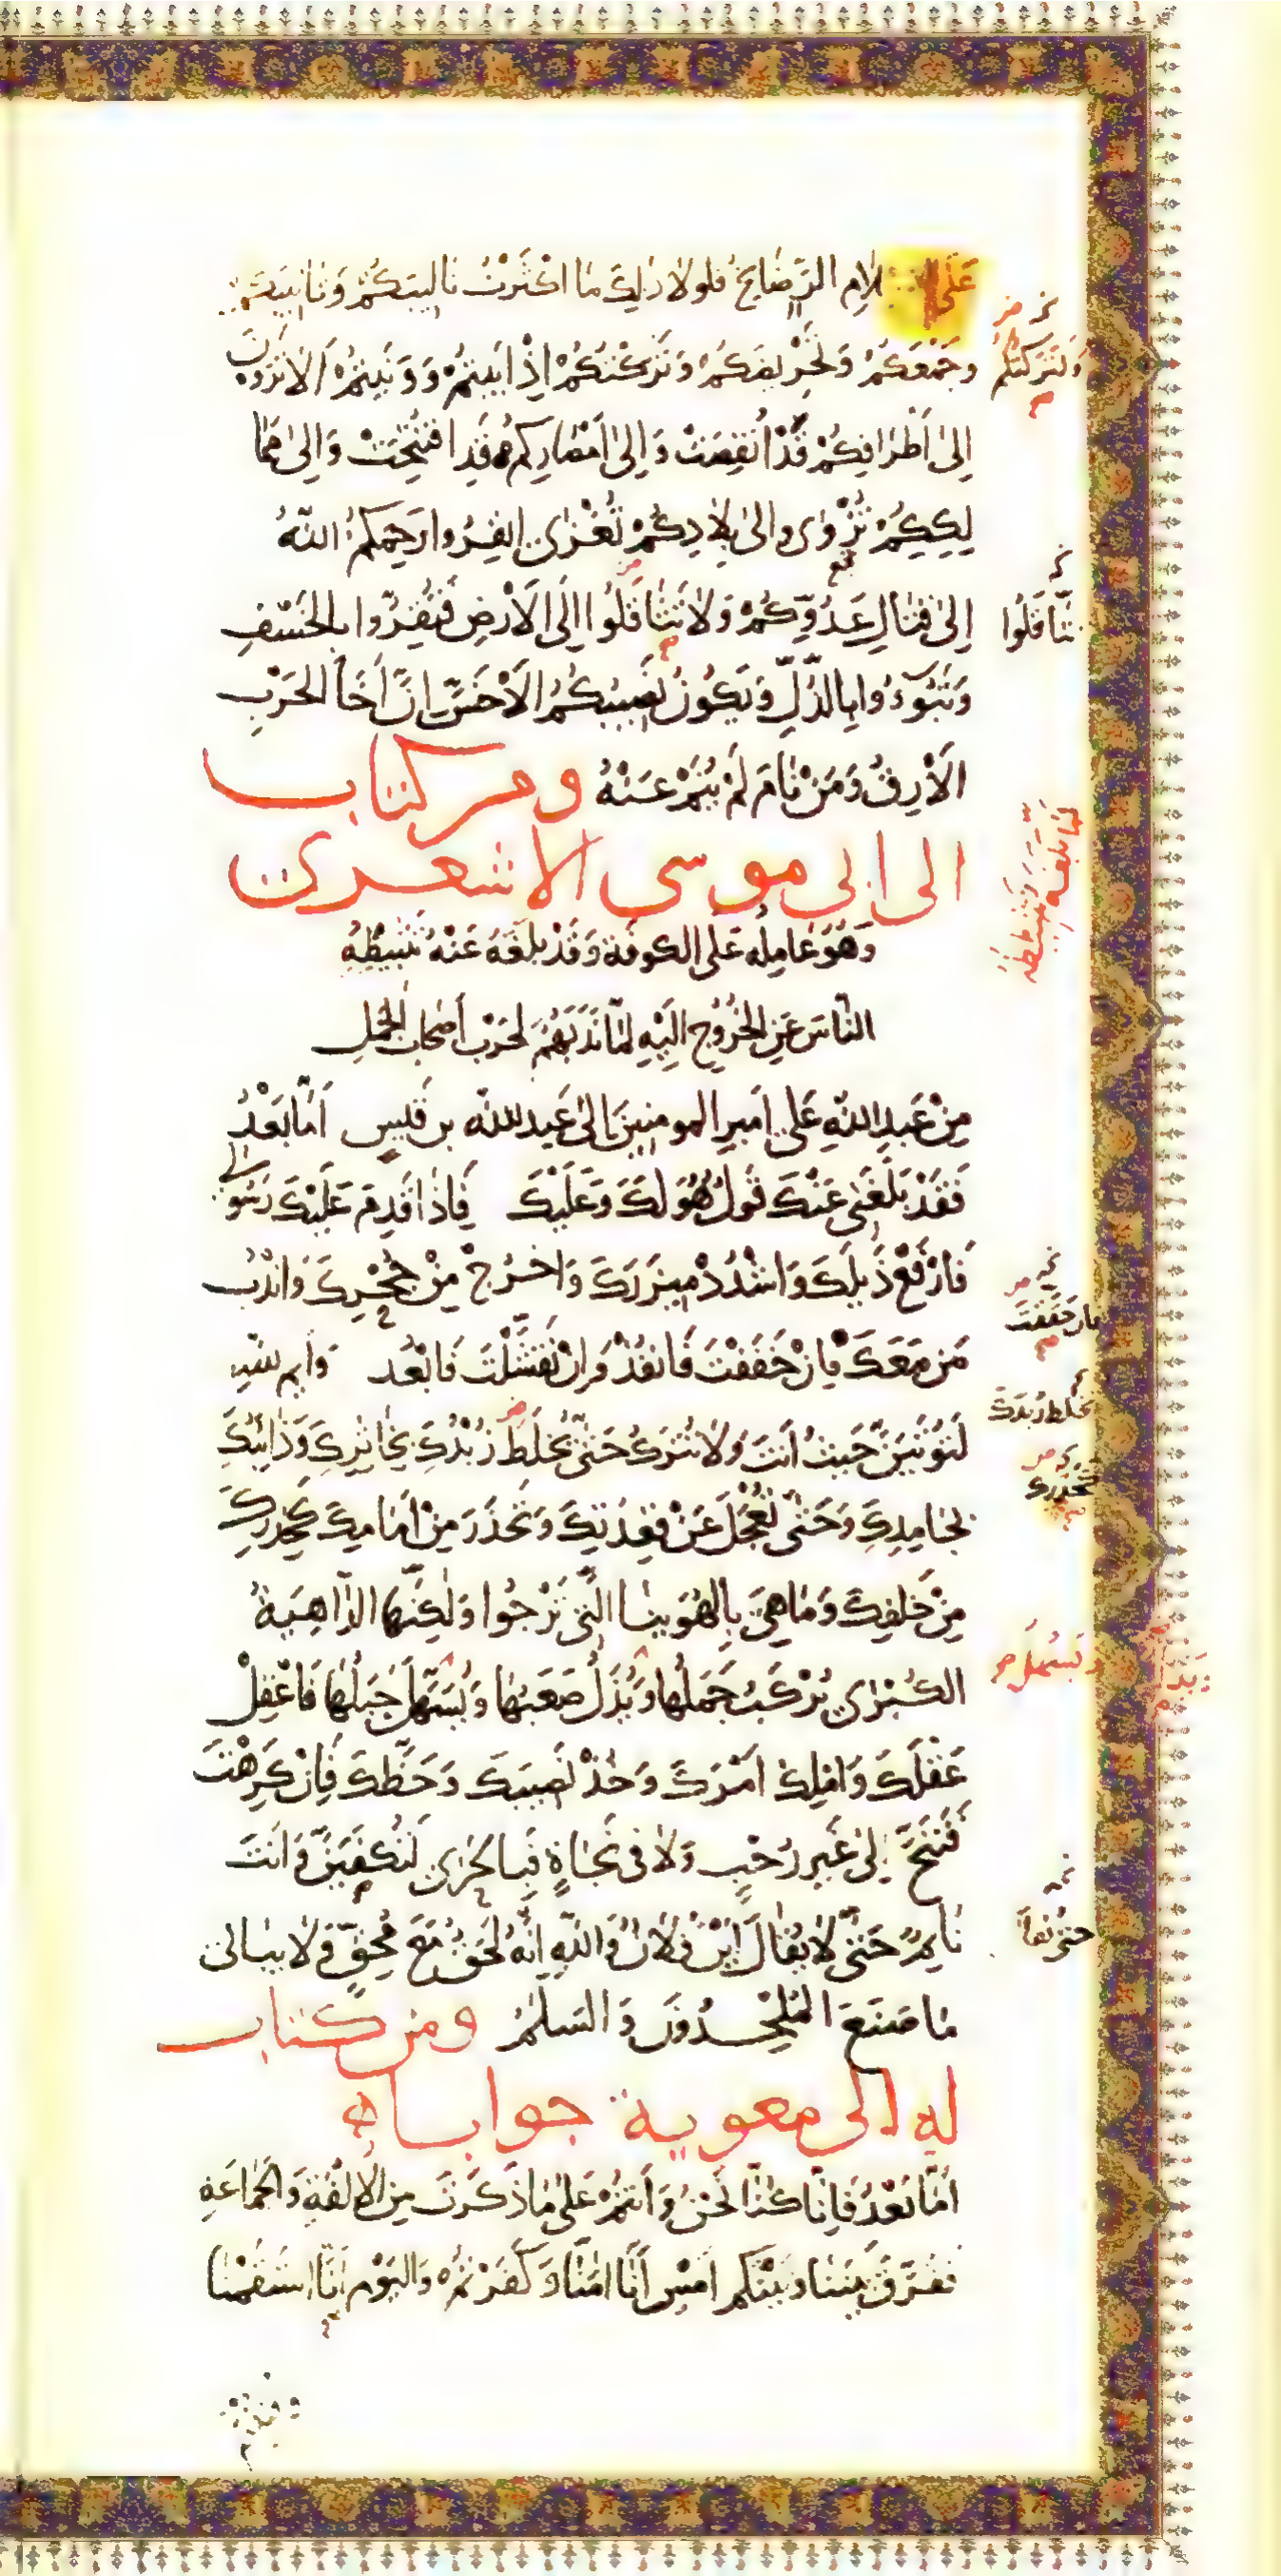 عَلَى الاسلامِ الرَّضَايِخُ فلولا ذلِكَ مَا اكْثَرْتُ تَالِيبَكُمْ وَتَانِيبَكُمْ
وَجَمْعَكُمْ وَتَحْرِيضَكُمْ وَتَرَكْتُكُمْ اِذْ اَبَيْتُمْ وَوَنَيْتُمْ اَلَا تَرَوْنَ
وَلَتَرَكْتُكُمْ
اِلَى اَطْرَافِكُمْ قَدْ اُنْتُقِصَتْ وَاِلَى اَمْصَارِكُمْ قَدِ افْتُتِحَتْ وَاِلَى مَمَا
لِكِكُمْ تُزْوَى وَاِلَى بِلَادِكُمْ تُغْزَى اِنْفِرُوا رَحِمَكُمُ اللّهُ
اِلَى قِتَالِ عَدُوِّكُمْ وَلَا تَثَّاقَلُوا اِلَى الْاَرْضِ فَتُقِرُّوا بِالْخَسْفِ
تَثَّاقَلُوا
وَتَبُوءُوا بِالذُّلِّ وَيَكُونُ نَصِيبُكُمُ الْاَخَسَّ اِنَّ اَخَا الْحَرْبِ
الْاَرِقُ وَمَنْ نَامَ لَمْ يُنَمْ عَنْهُ ومن كتاب
الى ابى موسى الاشعرى
وَهُوَ عَامِلُهُ عَلَى الكوفَة وَقَدْ بَلَغَهُ عَنْهُ تَثْبِيطُهُ
لَمَّا بَلَغَهُ تَثْبِيطُهُ
النَّاسَ عَنِ الْخُرُوجِ اِلَيْهِ لَمَّا نَدَبَهُمْ لِحَرْبِ اَصْحَابِ الْجَمَلِ
مِنْ عَبدِ اللّهِ عَلىٍ اَميرِ المومنِينَ اِلَى عَبدِ اللّه بن قَيسٍ اَمَّا بَعْدُ
فَقَدْ بَلَغَنِى عَنْكَ قَولٌ هُوَ لَكَ وَعَلَيْكَ فَاِذَا قَدِمَ عَلَيْكَ رَسُولِى
فَارْفَعْ ذَيلَكَ وَاشْدُدْ مِيزَرَكَ وَاخْرُجْ مِنْ جُحْرِكَ وَانْدُبْ
مَنْ مَعَكَ فَاِنْ حَقَّقْتَ فَانْفُذْ وَاِنْ تَفَشَّلْتَ فَابْعُد وَايم اللّهِ
فان حَقَّقْتَ
لَتُوتَيَنَّ حَيثُ اَنتَ وَلَا تُتْرَكُ حَتَّى يُخْلَطَ زُبْدُكَ بِخَاثِرِكَ وَذَائِبُكَ
يخلط زُبْدَكَ
بِجَامِدِكَ وَحَتَّى تُعْجَلَ عَنْ قِعْدَتِكَ وَتَحْذَرَ مِنْ اَمَامِكَ كَحِذْرِكَ
تَحْذَرَكَ
مِنْ خَلْفِكَ وَمَا هِىَ بِالْهُوَينَا الَّتِى تَرْجُوا وَلَكِنَّهَا الدَّاهِيَةُ
الكُبْرَى يُرْكَبُ جَمَلُهَا وَيُذَلُّ صَعْبُهَا وَيُسَهَّلُ جَبَلُهَا فَاعْقِلْ
وَيُسَهَّل
عَقْلَكَ وَامْلِكْ اَمْرَكَ وَخُذْ نَصِيبَكَ وَحَظَّكَ فَاِنْ كَرِهْتَ
فَتَنَحَّ اِلَى غَيرِ رَحْبٍ وَلَا فِى نَجَاةٍ فَبِالْحَرَى لَتُكْفَيَنَّ وَاَنتَ
نَايِمٌ حَتَّى لَا يُقَالَ اَيْنَ فُلَانٌ وَاللّهِ اِنَّهُ لَحَقٌّ مَعَ مُحِقٍّ وَلَا يبالى
حتى يُقَالَ
مَا صَنَعَ الْمُلْحِدُونَ وَالسَّلَمُ ومن كتاب
له الى معوية جوابا
اَمَّا بَعْدُ فَاِنَّا كُنَّا نَحْنُ وَاَنتُمْ عَلَى مَا ذَكَرتَ مِنَ الْاُلْفَةِ وَالْجَمَاعَةِ
فَفَرَّقَ بَيْنَنَا وَبَيْنَكُم اَمْسِ اَنَّا امَنَّا وَكَفَرْتُمْ وَالْيَوْمَ اَنَّا اسْتَقَمْنَا